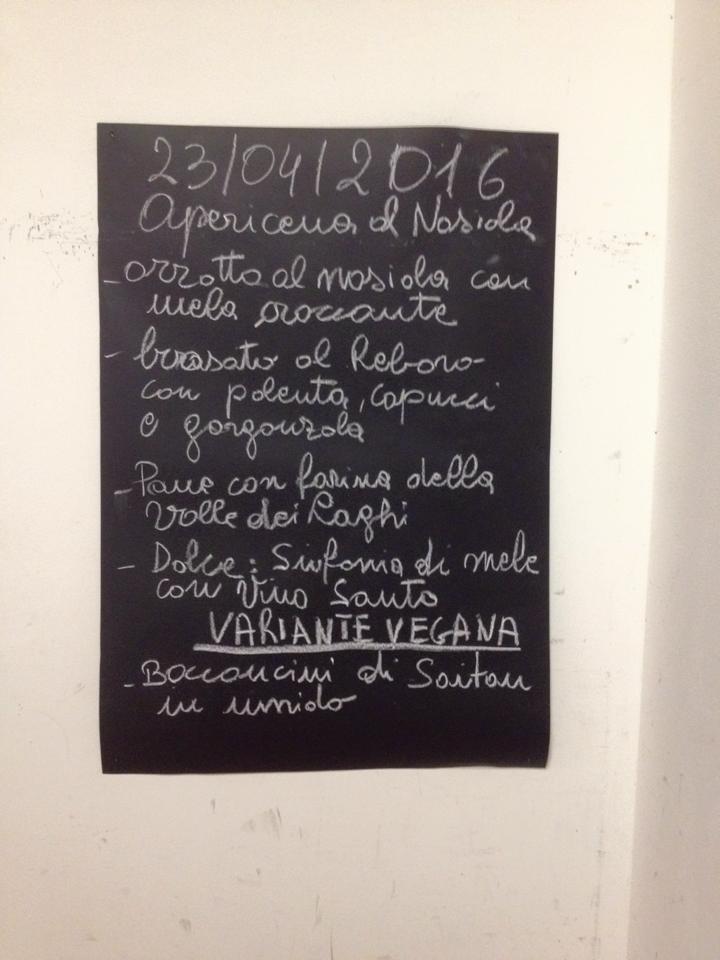 23/04/2016
Apericena al Nosiola
- orzotto al nosiola con
mela croccante
- brasato al Reboro
con polenta, capucci
e gorgonzola
- Pane con farina della
Valle dei Laghi
- Dolce: Sinfonia di mele
con Vino Santo
VARIANTE VEGANA
- Bocconcini di Saitan
in umido